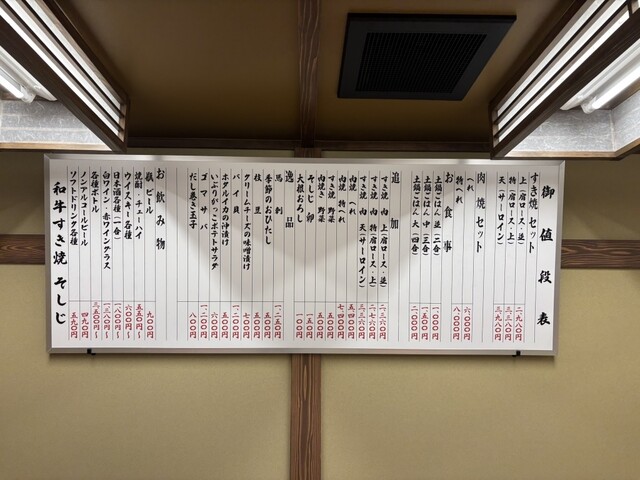 御値段表
すき焼セット
上(肩ロース・並) 二、九八〇円
特(肩ロース・上) 三、三八〇円
天(サーロイン) 三、九八〇円
肉焼セット
へれ 六、〇〇〇円
特へれ 八、〇〇〇円
お食事
土鍋ごはん 並(二合)
土鍋ごはん 中(三合)
土鍋ごはん 大(四合) 二、〇〇〇円
追加
すき焼 肉 上(肩ロース・並) 二、三六〇円
すき焼 肉 特(肩ロース・上) 二、七六〇円
すき焼 肉 天(サーロイン) 三、三六〇円
肉焼 へれ
肉焼 特へれ 七、四〇〇円
すき焼 野菜
肉焼き 野菜 五〇〇円
そしじ 卵 一五〇円
大根おろし 一〇〇円
逸品
馬刺 一、二五〇円
季節のおひたし 五〇〇円
枝豆 五〇〇円
クリームチーズの味噌漬け 七〇〇円
バイ貝 一、二〇〇円
ホタルイカの沖漬け 五〇〇円
いぶりがっこポテトサラダ 六〇〇円
ゴマサバ 一、二〇〇円
だし巻き玉子 八〇〇円
お飲み物
瓶ビール 九〇〇円
焼酎・チューハイ 五五〇円〜
ウイスキー各種 六〇〇円〜
日本酒各種(一合) 一、八〇〇円〜
白ワイン・赤ワイングラス 一、三八〇円〜
各種ボトル 三、五〇〇円〜
ノンアルコールビール 四九〇円
ソフトドリンク各種 五九〇円
和牛すき焼 そしじ